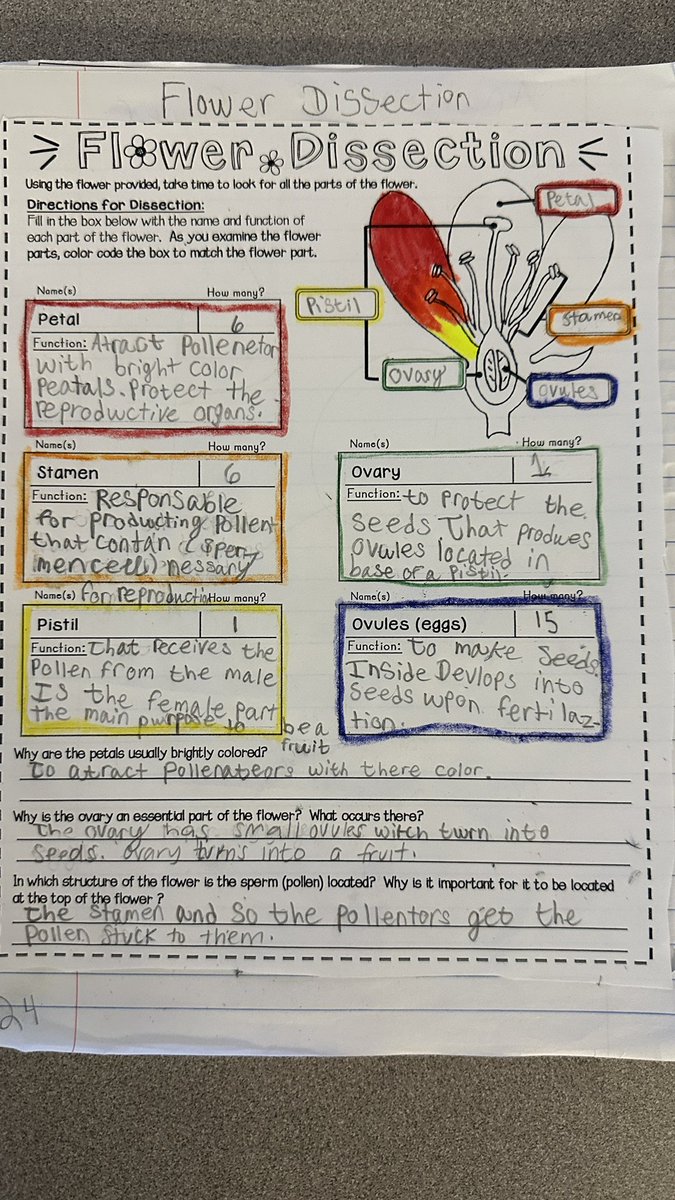 Flower Dissection
Flower Dissection
Using the flower provided, take time to look for all the parts of the flower.
Directions for Dissection:
Fill in the box below with the name and function of
each part of the flower. As you examine the flower
parts, color code the box to match the flower part.
Petal
Pistil
Stamen
Ovary
Ovules
Name(s) How many?
Petal 6
Function: Atract Pollenetor
with bright color
Peatals. Protect the
reproductive organs.
Name(s) How many?
Stamen 6
Function: Responsable
for producting Pollen
that contan (sper-
men cell) nessary
for reproduction
Name(s) How many?
Ovary 1
Function: to protect the
seeds That produces
Ovules located in
base of a Pistil.
Name(s) How many?
Pistil 1
Function: That receives the
Pollen from the male
Is the female part
the main purpose to be a
fruit
Name(s) How many?
Ovules (eggs) 15
Function: To make seeds.
Inside Devlops into
seeds upon fertilaz-
tion.
Why are the petals usually brightly colored?
To atract pollenateors with there color.
Why is the ovary an essential part of the flower? What occurs there?
The ovary has small ovules witch turn into
seeds. Ovary turns into a fruit.
In which structure of the flower is the sperm (pollen) located? Why is it important for it to be located
at the top of the flower ?
the Stamen and so the pollentors get the
Pollen stuck to them.
24